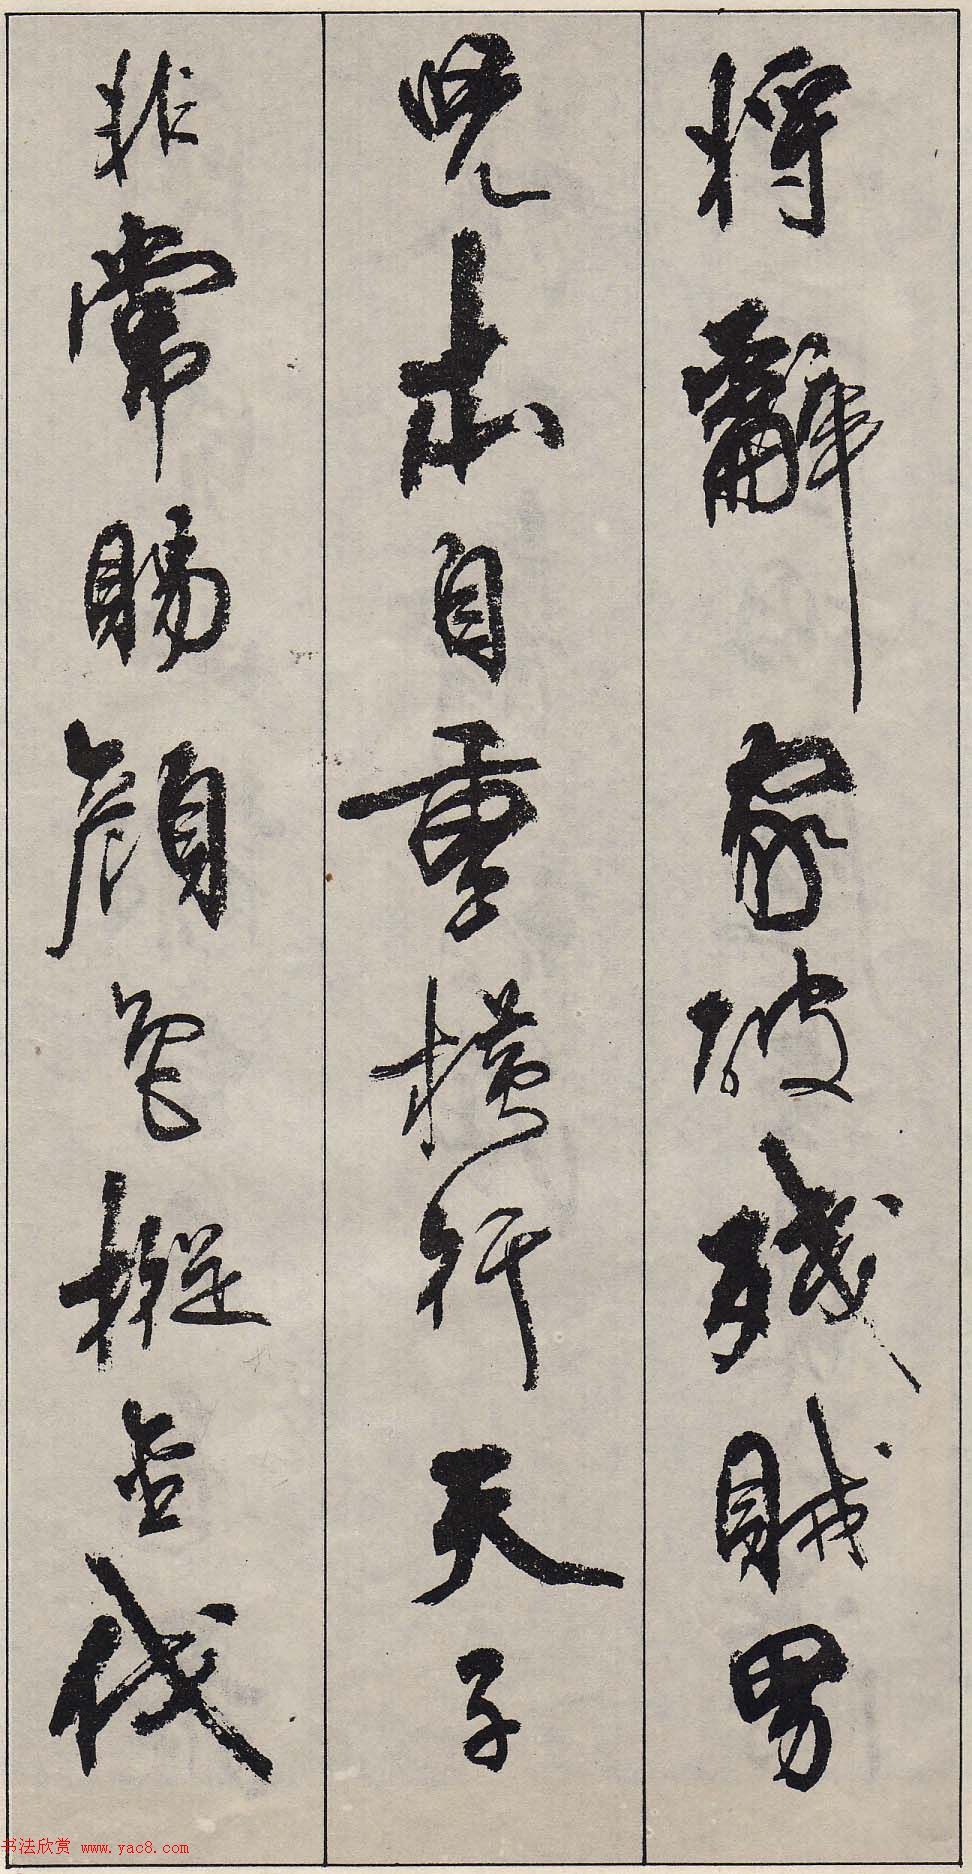 将辭家破殘賊男
児本自重橫行天子
非常賜顏色摐金伐
书法欣赏 www.yac8.com